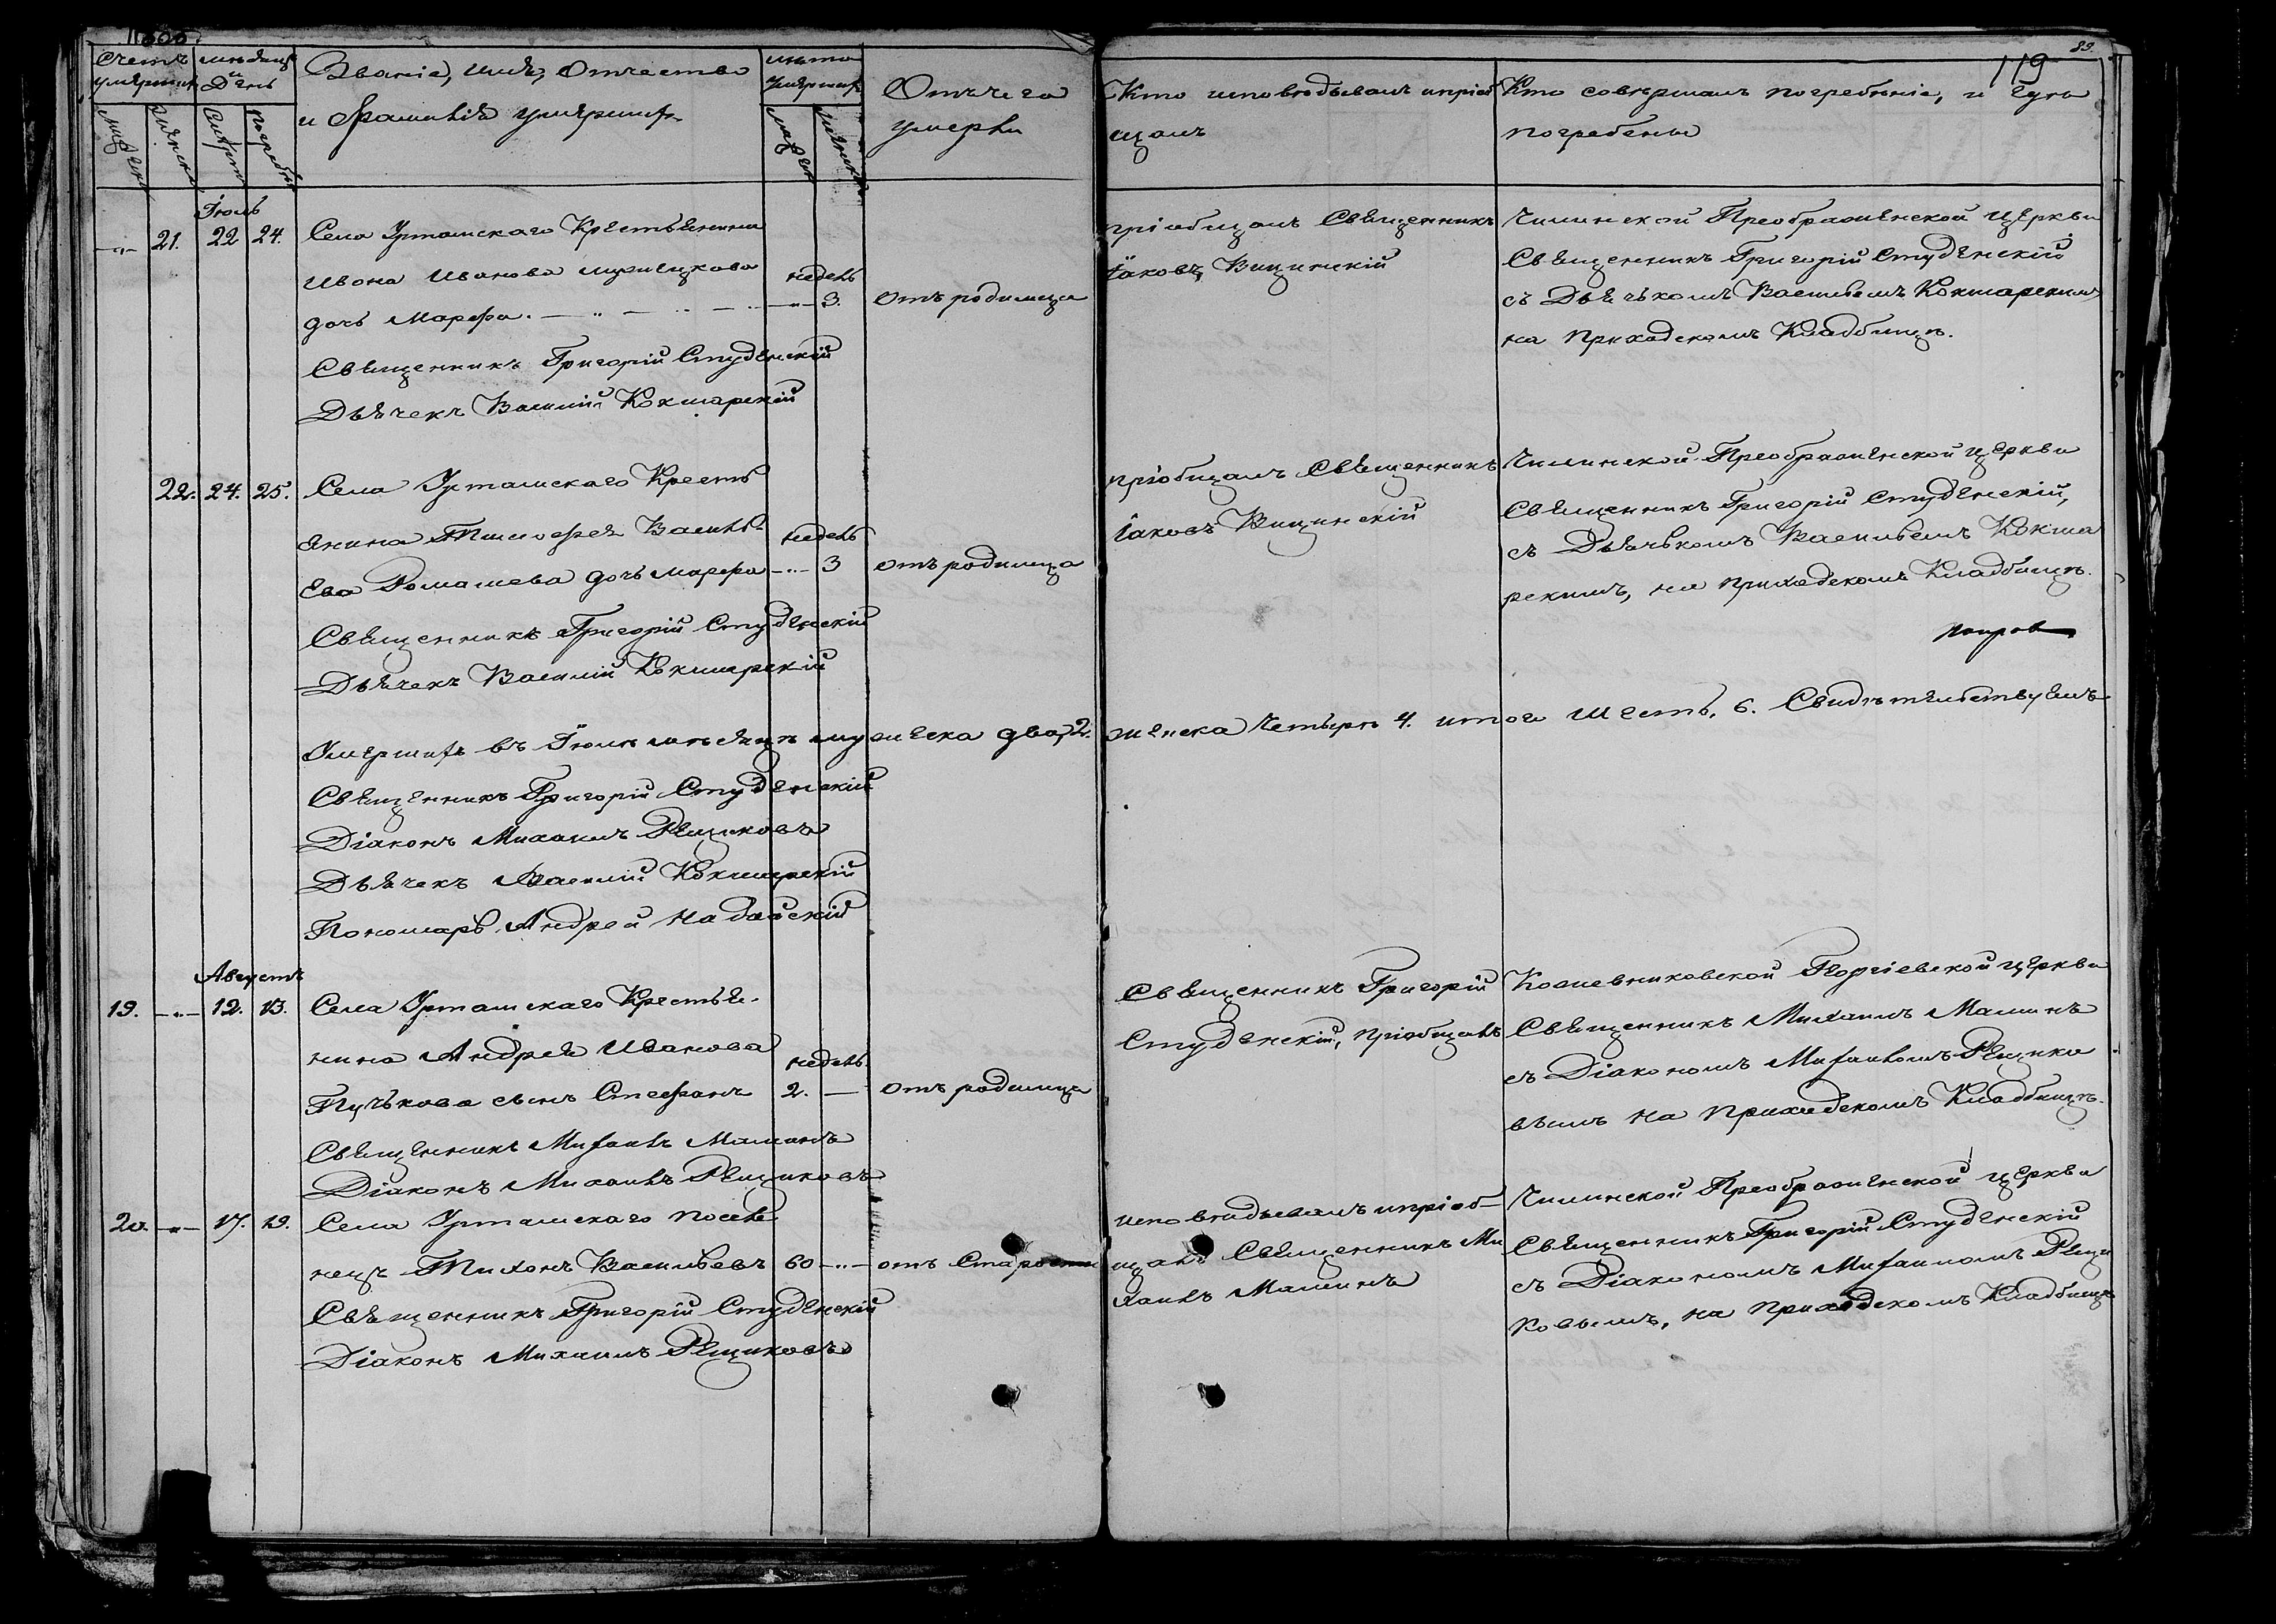 119
89.
Счетъ умершихъ
Мѣсяцъ и День
Званіе, имя, отчество
и фамилія умершихъ
лѣта умершихъ
Отъ чего
умерли
Кто исповѣдывалъ и пріоб
щалъ
Кто совершалъ погребеніе, и гдѣ
погребены
муж: женс: Смерти погреб:
муж: женс:
Іюль
21. 22 24. Села Уртамскаго Крестьянина
Ивана Иванова
недель
дочь Марфа. 3. отъ родимца
Священникъ Григорій Студенскій
Дьячекъ Василій Кокшарскій
пріобщалъ Священникъ
Іаковъ Вицинскій
Чилинской Преображенской церкви
Священникъ Григорій Студенскій
съ Дьячькомъ Васильемъ Кокшарскимъ
на приходскомъ Кладбищѣ.
22. 24. 25. Села Уртамскаго Кресть
янина Тимофея Василь-
недель
ева Ромашева дочь марфа 3 отъ родимца
Священникъ Григорій Студенскій
Дьячекъ Василій Кокшарскій
пріобщалъ Священникъ
Іаковъ Вицинскій
Чилинской Преображенской церкви
Священникъ Григорій Студенскій,
съ Дьячькомъ Васильемъ Кокша
рскимъ, на приходскомъ Кладбищѣ.
Умершихъ въ Іюлѣ мѣсяцѣ мужеска два, 2. женска Четыре 4. итого Шесть, 6. Свидѣтельствуемъ
Священникъ Григорій Студенскій
Діаконъ Михаилъ Рещиковъ
Дьячекъ Василій Кокшарскій
Пономарь Андрей Надайскій
Августъ
19. 12. 13. Села Уртамскаго Крестья-
нина Андрея Иванова
недель.
Пучькова сынъ Стефанъ 2. отъ родимца
Священникъ Михаилъ Машинъ
Діаконъ Михаилъ Рещиковъ
Священникъ Григорій
Студенскій, пріобщалъ
Кожевниковской Георгіевской церкви
Священникъ Михаилъ Машинъ
съ Діакономъ Михаиломъ Рещико
вымъ на приходскомъ Кладбищѣ.
20. 17. 19. Села Уртамскаго посель
нецъ Тихонъ Васильевъ 60 отъ Старости
Священникъ Григорій Студенскій
Діаконъ Михаилъ Рещиковъ
исповѣдывалъ и пріоб-
щалъ Священникъ Ми
хаилъ Машинъ
Чилинской Преображенской церкви
Священникъ Григорій Студенскій
съ Діакономъ Михаиломъ Рещи
ковымъ, на приходскомъ Кладбищѣ